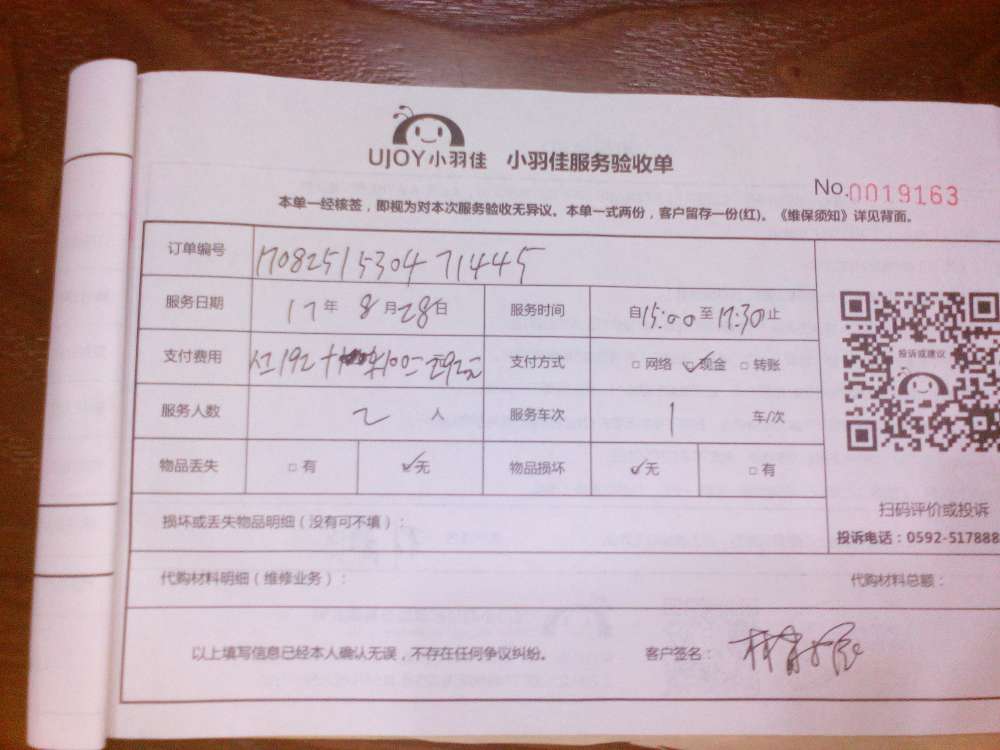 UJOY小羽佳 小羽佳服务验收单
No.0019163
本单一经核签，即视为对本次服务验收无异议。本单一式两份，客户留存一份(红)。《维保须知》详见背面。
订单编号 170825153047 1445
服务日期 17年 8月28日 服务时间 自15:00至17:30止
支付费用 192+100=292元 支付方式 □网络 ☑现金 □转账
投诉或建议
服务人数 2 人 服务车次 1 车/次
物品丢失 □有 ☑无 物品损坏 ☑无 □有
损坏或丢失物品明细（没有可不填）：
扫码评价或投诉
投诉电话：0592-517888
代购材料明细（维修业务）： 代购材料总额：
以上填写信息已经本人确认无误，不存在任何争议纠纷。 客户签名：